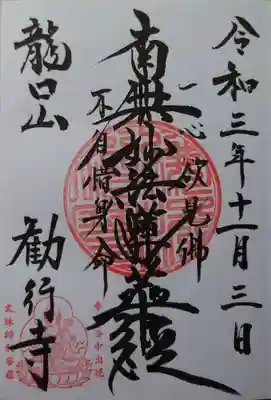 令和三年十一月三日
一心欲見佛
南無妙法蓮華経
不自惜身命
龍口山
勧行寺